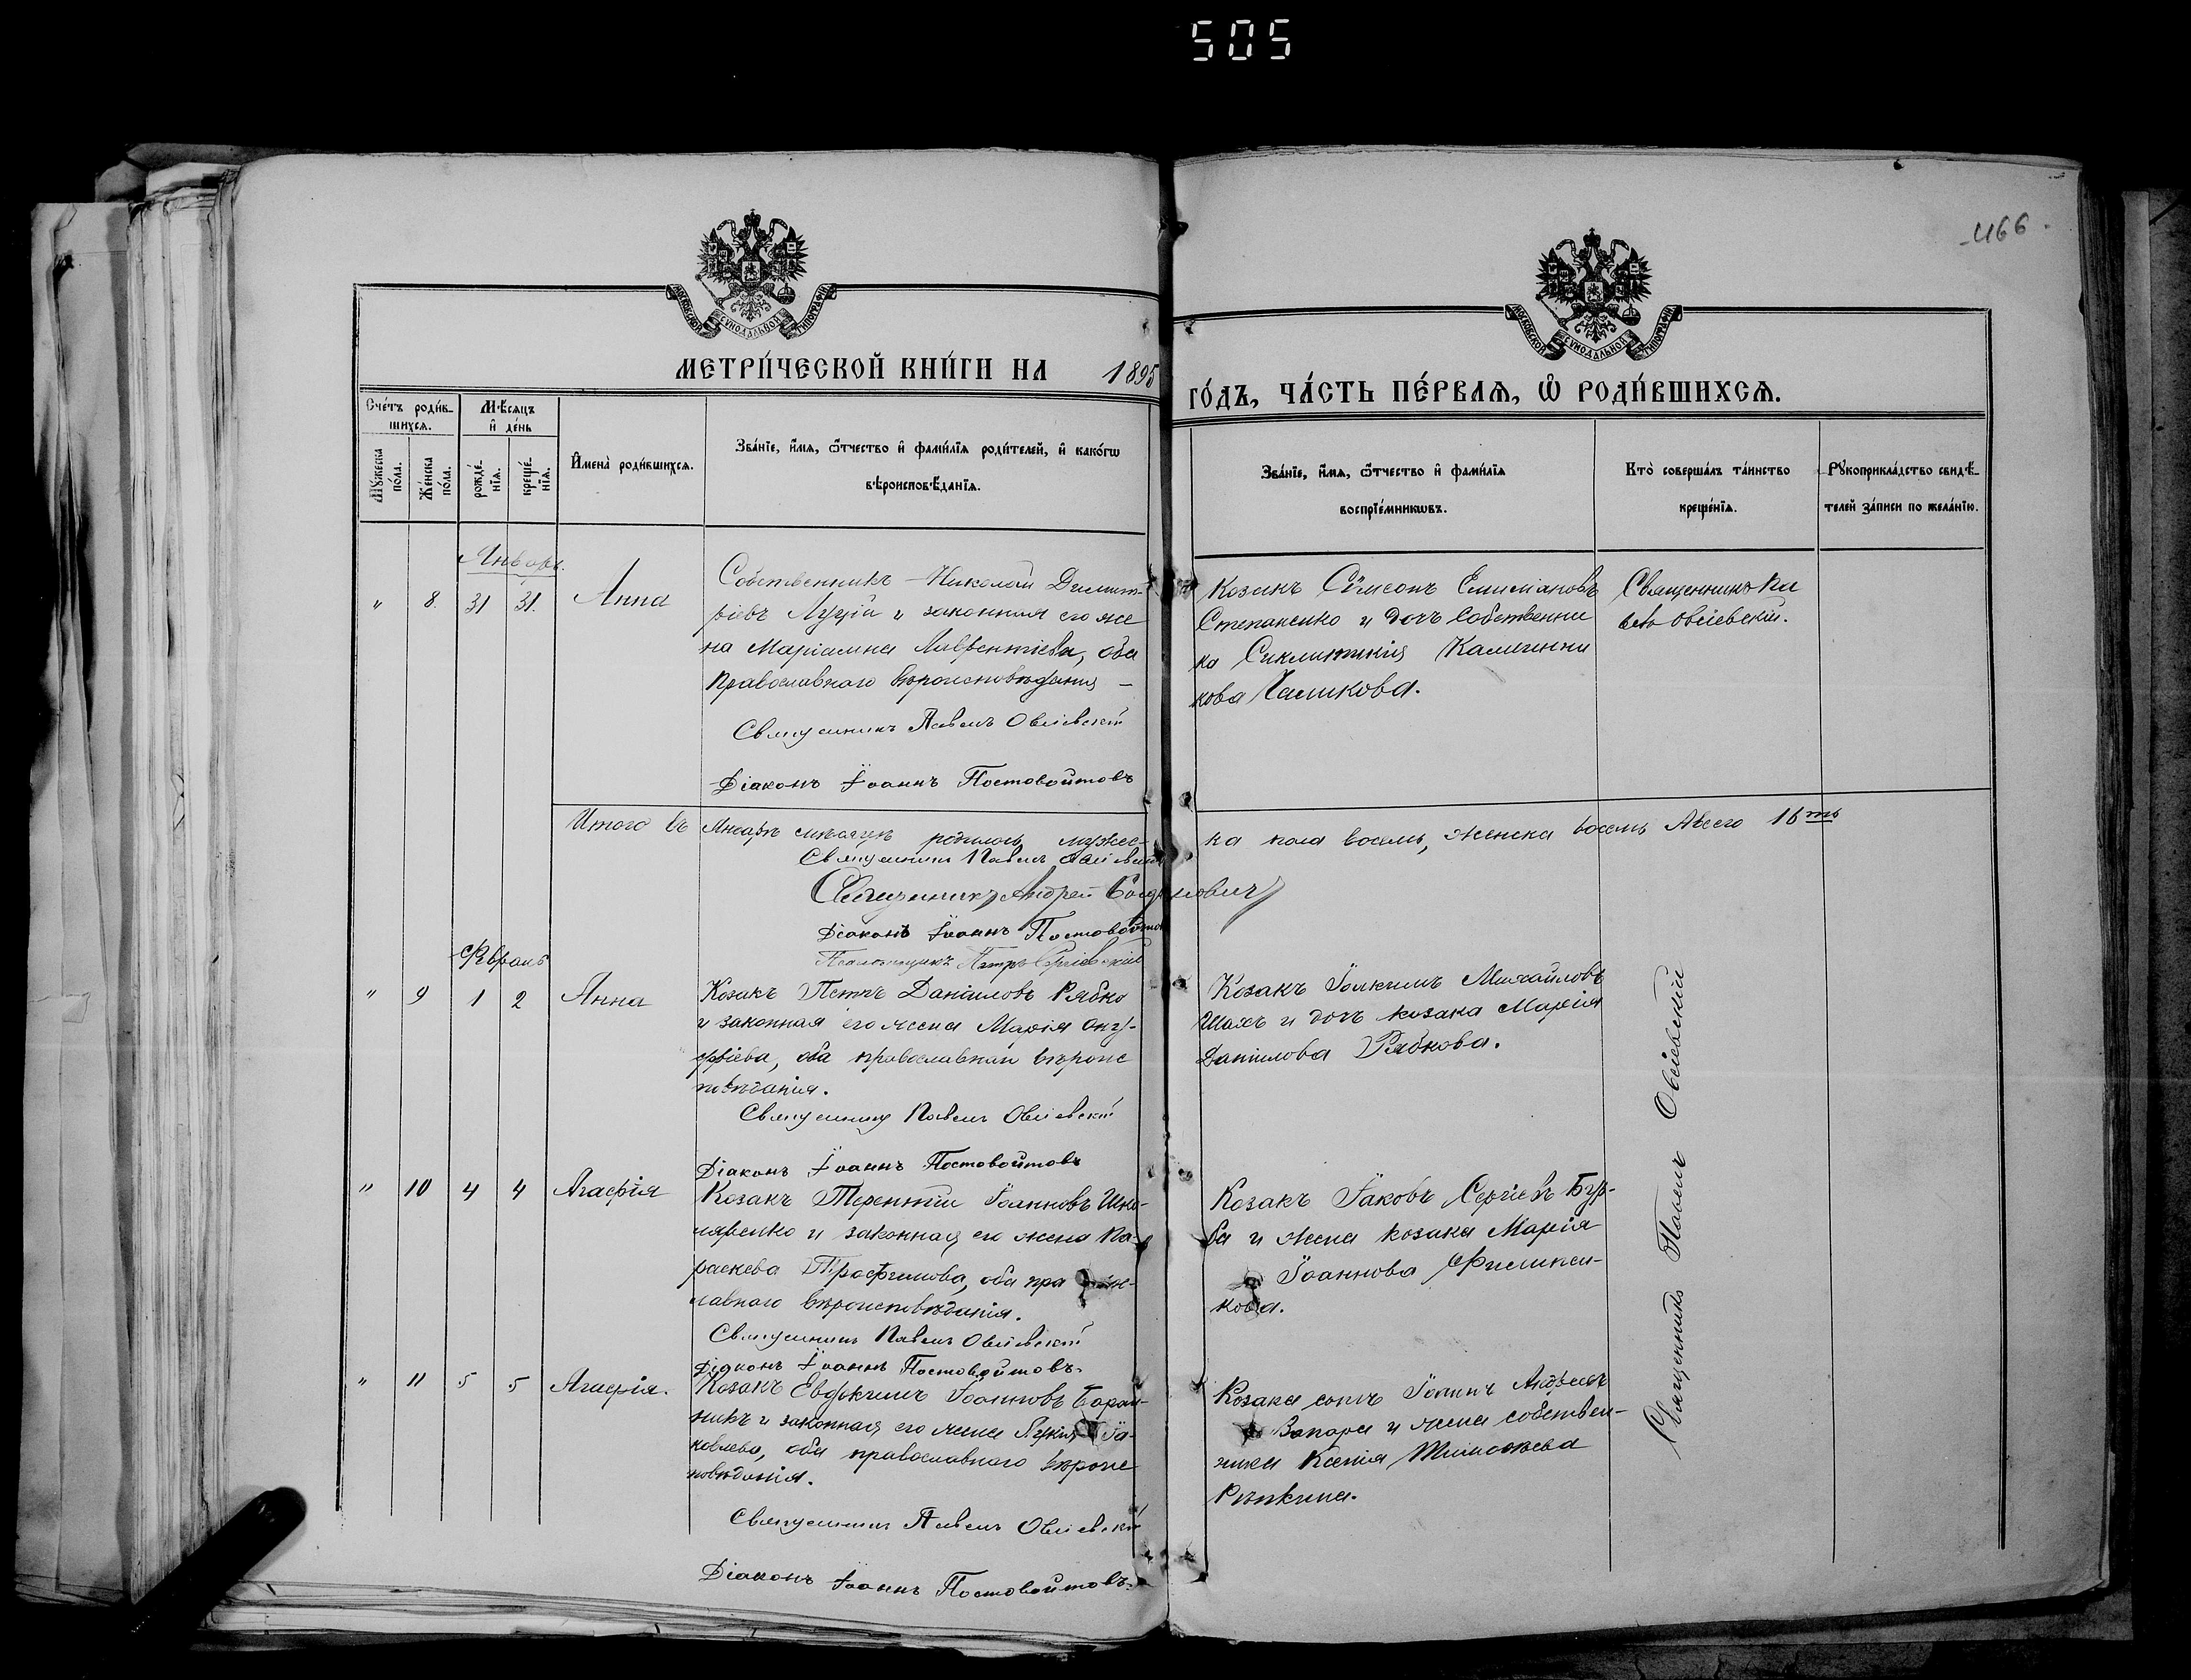 505
466
МОСКОВСКОЙ СѴНОДАЛЬНОЙ ТИПОГРАФІИ
МОСКОВСКОЙ СѴНОДАЛЬНОЙ ТИПОГРАФІИ
МЕТРИ́ЧЕСКОЙ КНИ́ГИ НА 1895
ГО́ДЪ, ЧА́СТЬ ПЕ́РВАѦ, Ѡ҆ РОДИ́ВШИХСѦ.
Сче́тъ роди́в-
шихсѧ.
Мѣсѧцъ
и҆ де́нь
Мꙋ́жеска
по́ла.
Же́нска
по́ла.
рожде́-
нїѧ.
креще́-
нїѧ.
И҆мена̀ роди́вшихсѧ.
Зва́нїе, и҆́мѧ, ѻ҆́тчество и҆ фами́лїѧ роди́телей, и҆ како́гѡ
вѣроисповѣ́данїѧ.
Зва́нїе, и҆́мѧ, ѻ҆́тчество и҆ фами́лїѧ
воспрїе́мникѡвъ.
Кто̀ соверша́лъ та́инство
креще́нїѧ.
Рꙋкоприкла́дство свидѣ́-
телей за́писи по жела́нїю.
Январь.
" 8. 31 31. Анна
Собственникъ Николай Димит-
ріевъ и законная его же
на Маріамна Лаврентіева, оба
Православнаго вѣроисповѣданія —
Священникъ Павелъ Овсіевскій
Діаконъ Іоаннъ Постовойтовъ
Козакъ Сѵмеонъ
Степаненко и дочь собственни
ка
кова
Священникъ Па
велъ Овсіевскій.
Итого въ Январѣ мѣсяцѣ родилось мужес-
ка пола восемь, женска восемь Всего 16ть
Священникъ Павелъ Овсіевскій
Священникъ Андрей
Діаконъ Іоаннъ Постовойтовъ
Псаломщикъ Петръ
Февраль
" 9 1 2 Анна
Козакъ Петръ Даніиловъ Рябко
и законная его жена Марія Ону-
фріева, оба православнаго вѣроис
повѣданія.
Священникъ Павелъ Овсіевскій
Діаконъ Іоаннъ Постовойтовъ
Козакъ Іоакимъ Михайловъ
Шахъ и дочь козака Марія
Даніилова Рябкова.
" 10 4 4 Агафія
Козакъ Терентій Іоанновъ Шко-
ляренко и законная его жена Па-
раскева Трофимова, оба право-
славнаго вѣроисповѣданія.
Священникъ Павелъ Овсіевскій
Діаконъ Іоаннъ Постовойтовъ.
Козакъ Іаковъ Сергіевъ Бур-
ба и жена козака Марія
Іоаннова Филипен-
кова.
" 11 5 5 Агафія.
Козакъ Евфкимъ Іоанновъ Баран-
никъ и законная его жена Іа-
ковлева, оба православнаго вѣроис
повѣданія.
Священникъ Павелъ Овсіевскій
Діаконъ Іоаннъ Постовойтовъ.
Козака сынъ Іоаннъ Андреевъ
Запара и жена собствен-
ника Ксенія Тимофѣева
Рѣпкина.
Священникъ Павелъ Овсіевскій